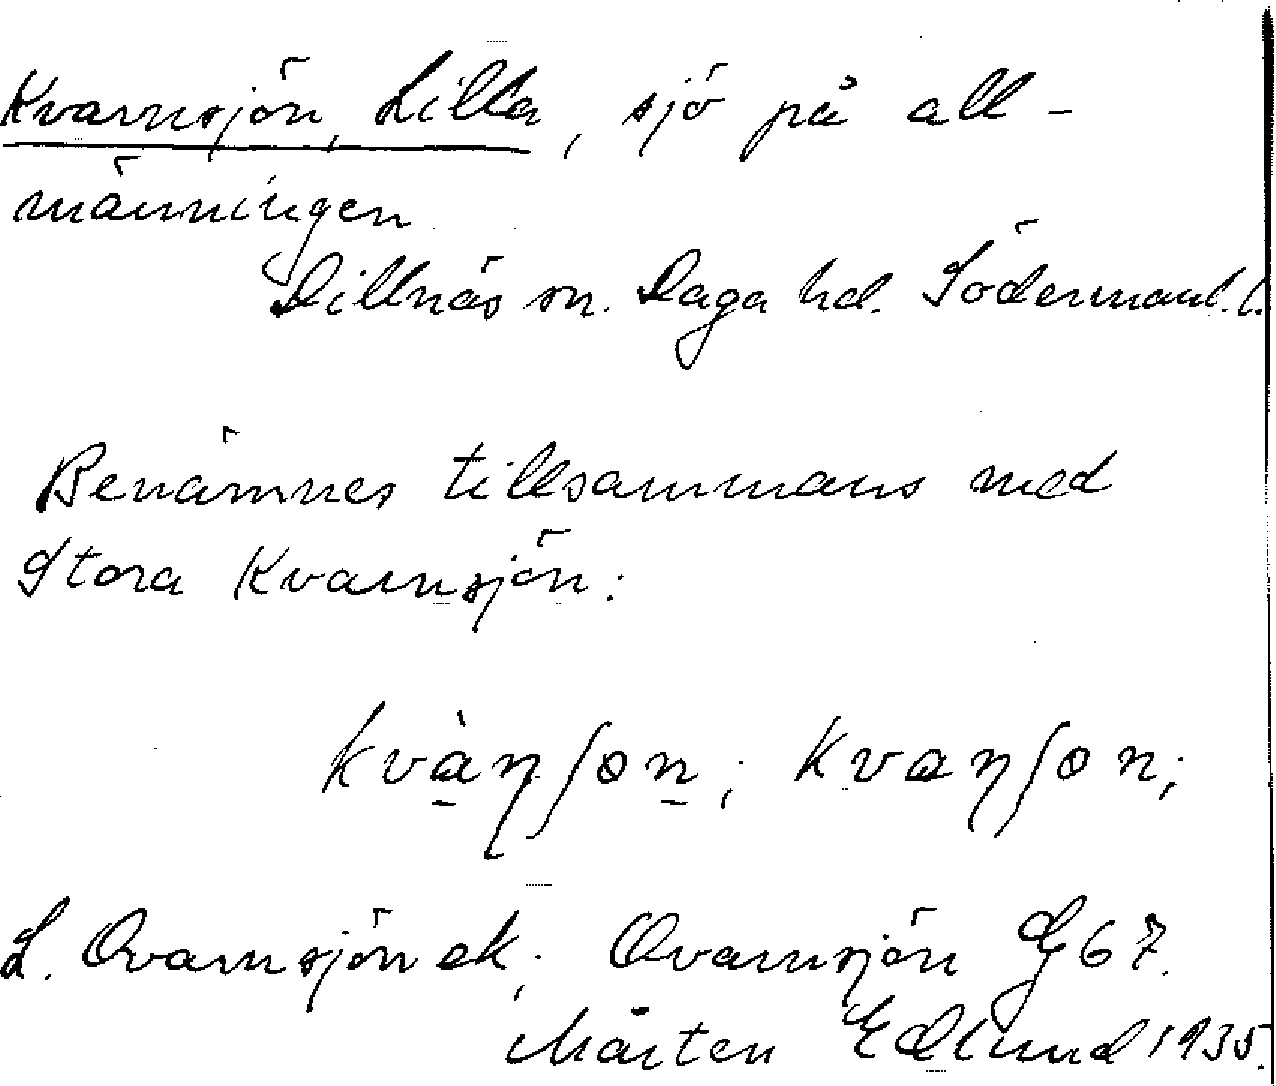 Kvarnsjön, Lilla, sjö på all-
männingen
Dillnäs sn. Daga hd. Södermanl. l.
Benämnes tillsammans med
Stora Kvarnsjön:
kvàṉʃoṉ; kvaŋʃon;
L. Qvarnsjön ek; Qvarnsjön G 67.
Mårten Edlund 1935.